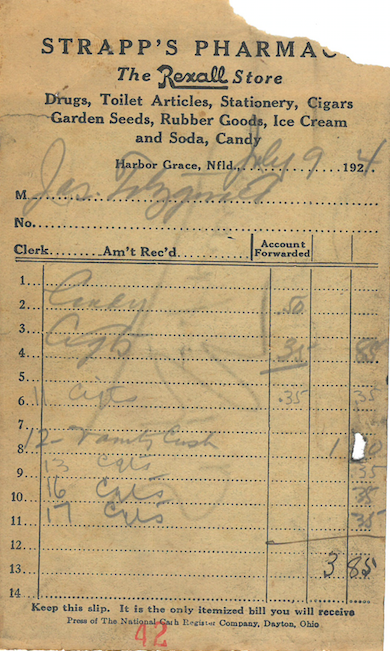 STRAPP'S PHARMAC
The Rexall Store
Drugs, Toilet Articles, Stationery, Cigars
Garden Seeds, Rubber Goods, Ice Cream
and Soda, Candy
Harbor Grace, Nfld., July 9 1924
M Jas.
No.
Clerk Am't Rec'd Account Forwarded
1
2 Candy .50
3 Cigts
4 .35 85
5
6 11 Cigts .35 35
7
8 12 - Vanity Cash 1
9 13 Cgts 35
10 16 Cgts 35
11 17 Cgts 35
12
13 3 85
14
Keep this slip. It is the only itemized bill you will receive
Press of The National Cash Register Company, Dayton, Ohio
42